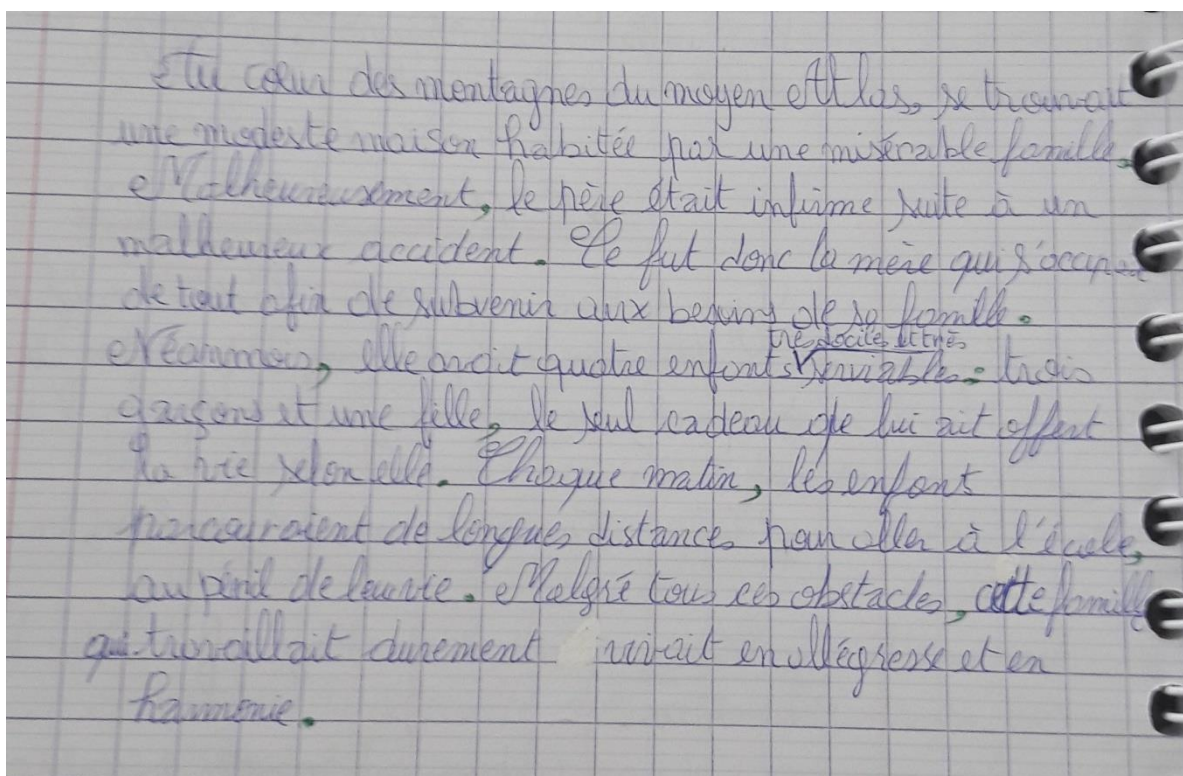 Au cœur des montagnes du moyen Atlas, se trouvait
une modeste maison habitée par une misérable famille.
Malheureusement, le père était infirme suite à un
malheureux accident. Ce fut donc la mère qui s'occupa
de tout afin de subvenir aux besoins de sa famille.
Néanmoins, elle avait quatre enfants très dociles et très serviables : trois
garçons et une fille, le seul cadeau que lui ait offert
la vie selon elle. Chaque matin, les enfants
parcouraient de longues distances pour aller à l'école,
au péril de leur vie. Malgré tous ces obstacles, cette famille
qui travaillait durement vivait en allégresse et en
harmonie.